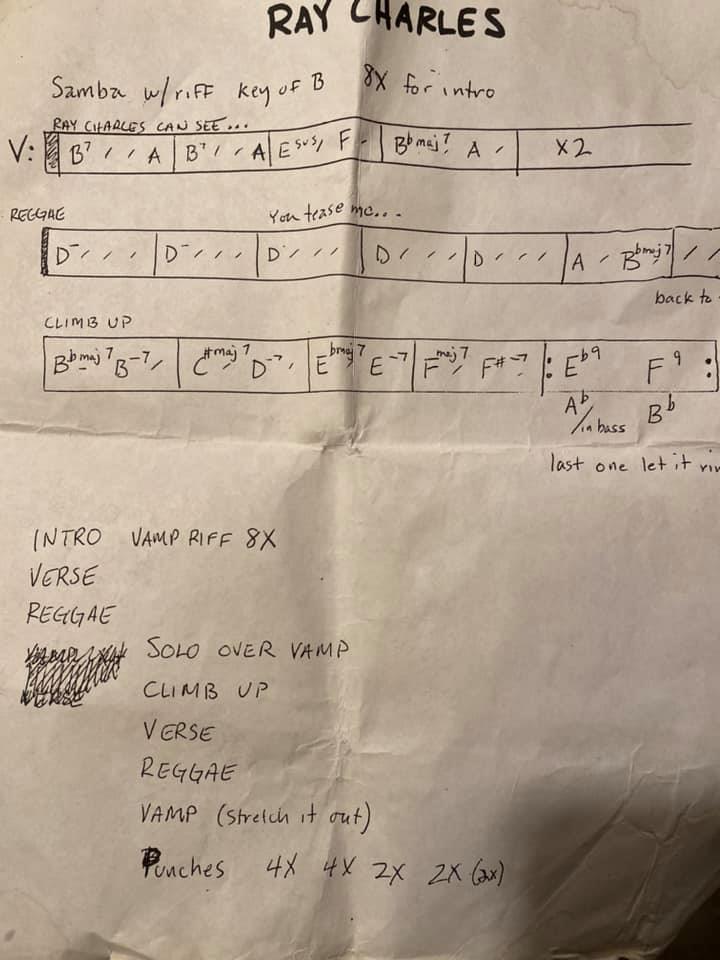 RAY CHARLES
Samba w/riff key of B 8X for intro
RAY CHARLES CAN SEE...
V: B7 / / A | B7 / / A | E sus / F - | Bb maj7 A / | X2
REGGAE You tease me...
D- / / / | D- / / / | D / / / | D / / / | D / / / | A / Bbmaj7 / | / /
back to
CLIMB UP
Bbmaj7 B-7 / | C#maj7 D-7 / | Ebmaj7 E-7 | Fmaj7 / F#-7 |: Eb9 F9 :
Ab/in bass Bb
last one let it
INTRO VAMP RIFF 8X
VERSE
REGGAE
SOLO OVER VAMP
CLIMB UP
VERSE
REGGAE
VAMP (stretch it out)
Punches 4X 4X 2X 2X (2x)